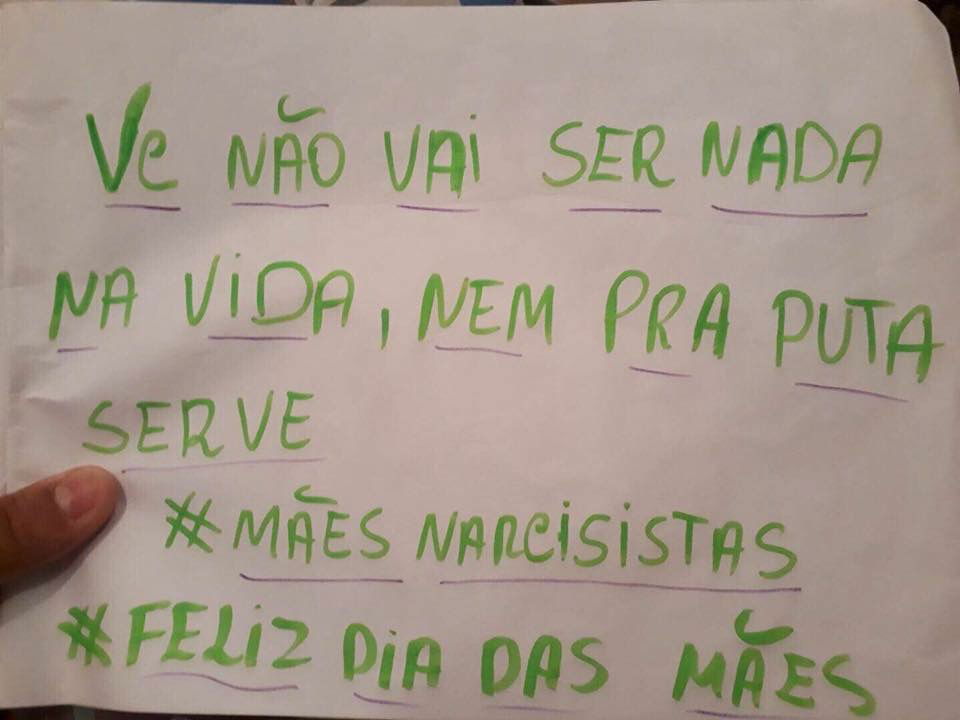 Vc NÃO VAi SER NADA
NA ViDA, NEM PRA PUTA
SERVE
#MÃES NARCiSiSTAS
#FELiZ DiA DAS MÃES